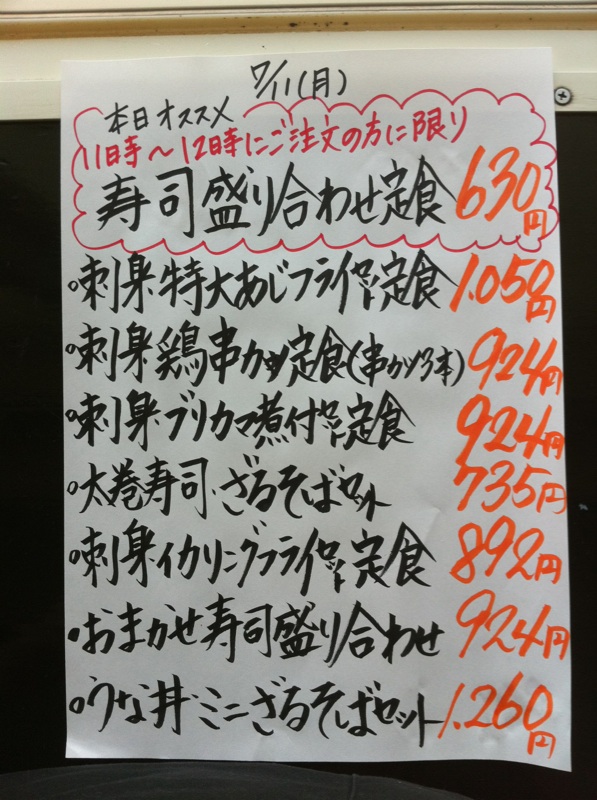 7/11(月)
本日オススメ
11日寺～12時にご注文の方に限り
寿司盛り合わせ定食 630円
○刺身・特大あじフライセット定食 1.050円
○刺身・鶏串カツ定食(串カツ3本) 924円
○刺身・ブリカマ煮付セット定食 924円
○大巻寿司・ざるそばセット 735円
○刺身・イカリングフライセット定食 892円
○おまかせ寿司盛り合わせ 924円
○うな丼・ミニざるそばセット 1.260円